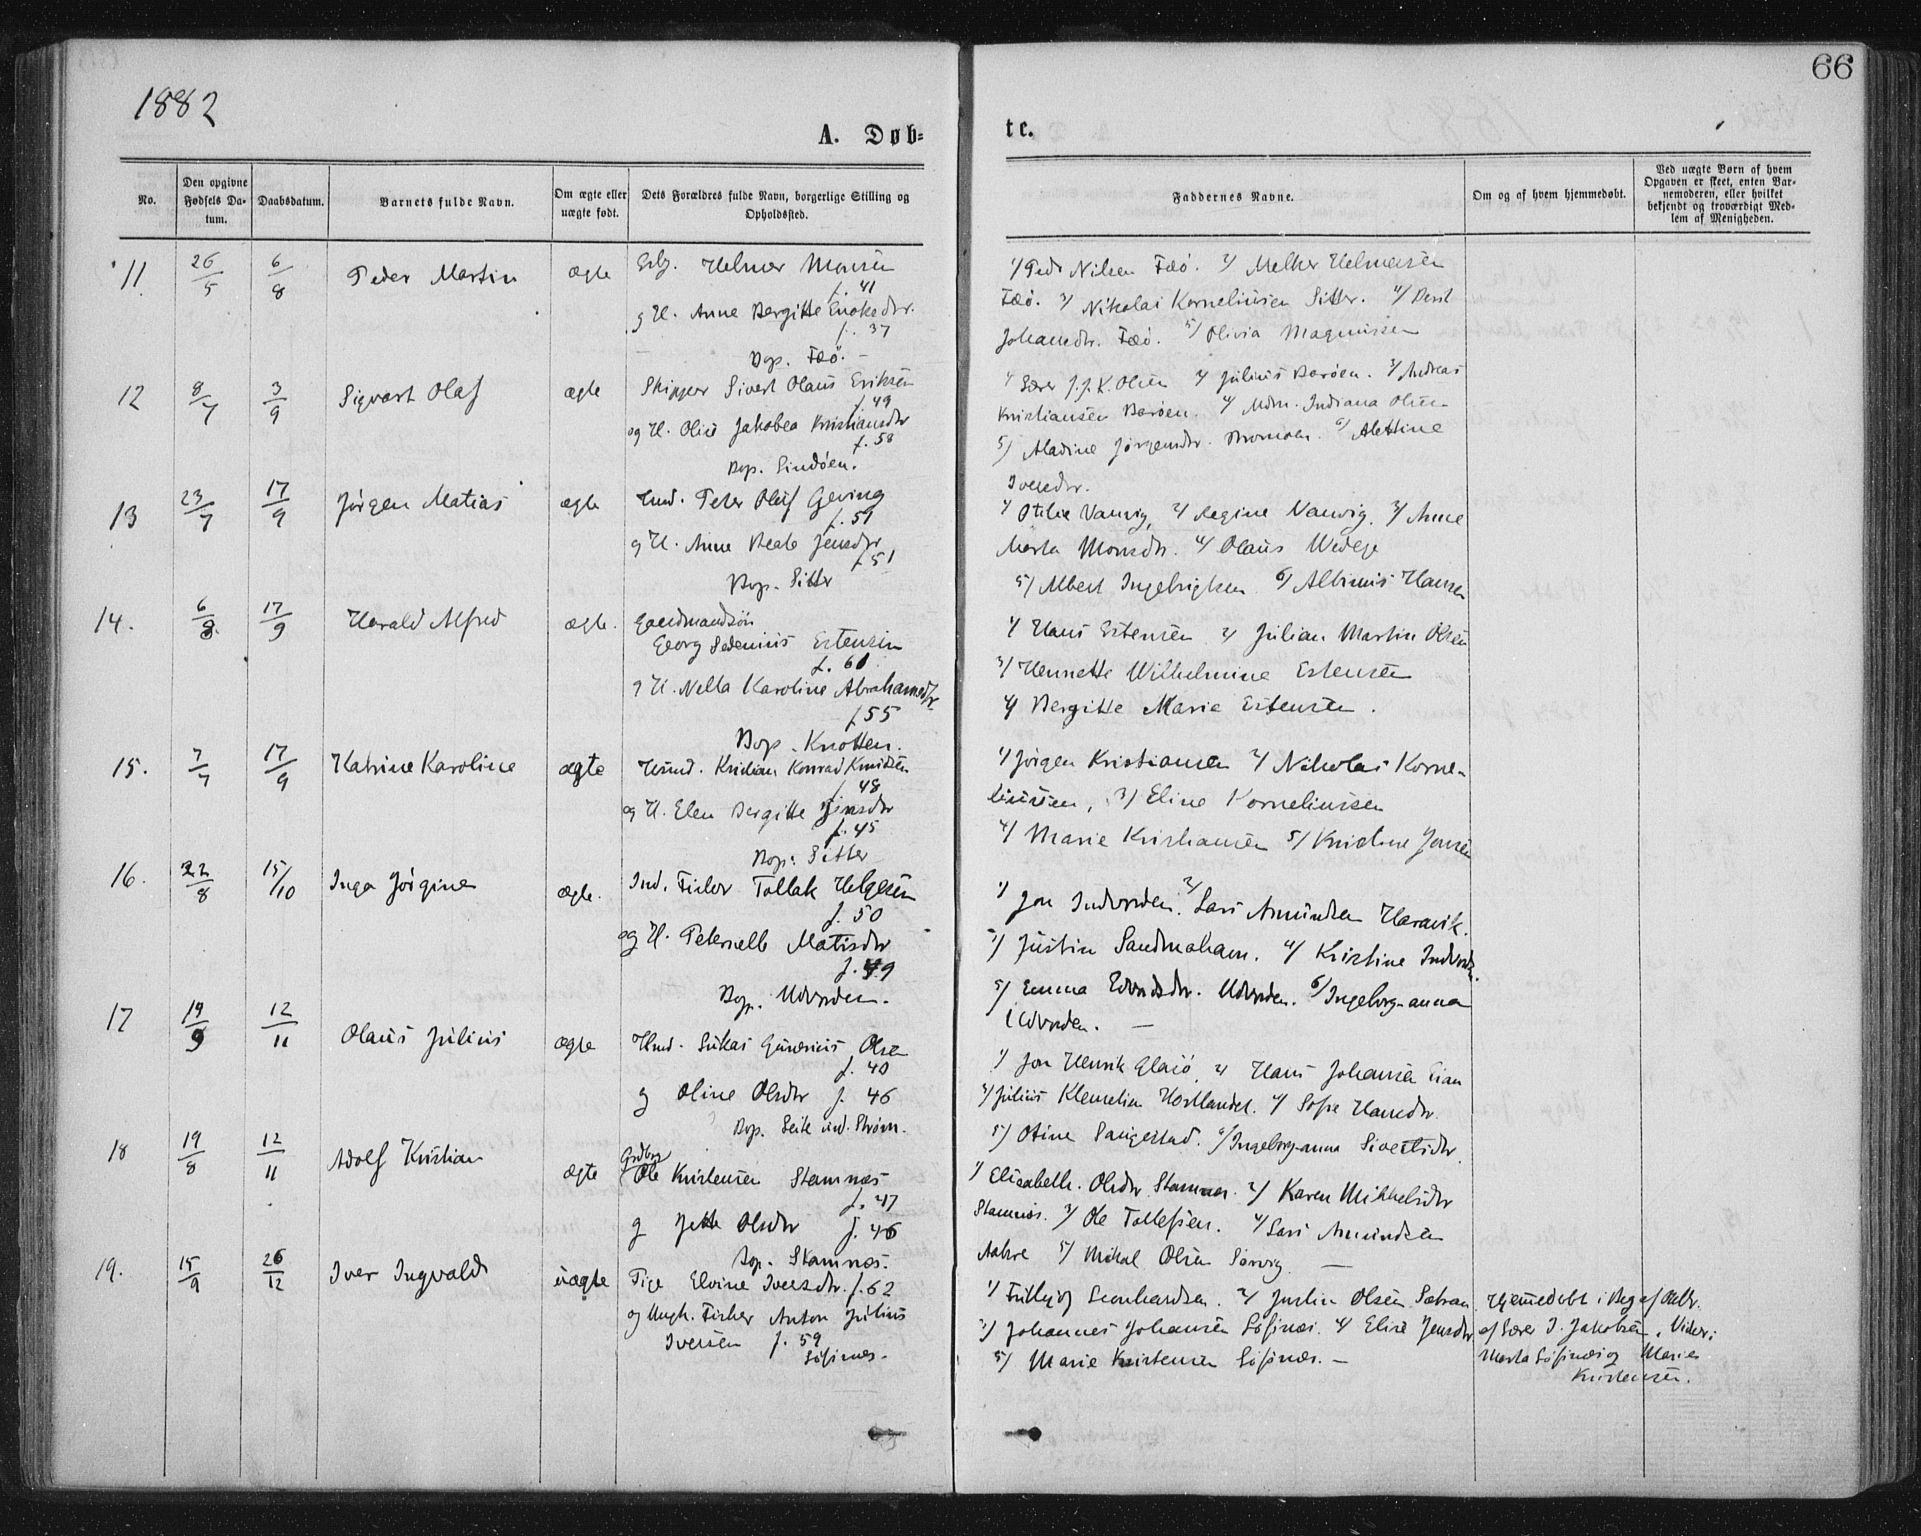 1882
66
A. Døb=
te.
No.
Den opgivne Fødsels Datum.
Daabsdatum.
Barnets fulde Navn.
Om ægte eller uægte født.
Dets Forældres fulde Navn, borgerlige Stilling og Opholdssted.
Faddernes Navne.
Om og af hvem hjemmedøbt.
Ved uægte Børn af hvem Opgaven er skeet, enten Barnemoderen, eller hvilket bekjendt og troværdigt Medlem af Menigheden.
11 26/5 6/8 Peder Martin ægte Helmer Monsen
f. 41
g H. Anne Bergitte Enoksdtr.
f. 37
Bop. Fæø.
1/ Peder Nilsen Fæø. 2/ Melker Helmersen
Fæø. 3/ Nikolai Korneliusen Sitter. 4/ Berit
Johansdtr. Fæø. 5/ Olivia Magnussen
12 8/7 3/9 Sigvart Olaf ægte Skipper Sivert Olaus Eriksen
f. 49
og H. Jakobea Kristiansdtr
f. 58
Bop. Sindøen.
1/ Lærer J. J. K. Olsen 2/ Julius Barøen. 3/ Andreas
Kristiansen Barøen. 4/ Mdm. Indiana Olsen
5/ Aladine Jørgensdtr. 6/ Alettine
Iversdtr.
13 23/7 17/9 Jørgen Matias ægte Hmd. Peter Oluf Geving
f. 51
g H. Anne Beate Jensdtr
f. 51
Bop. Sitter
1/ Otilie Vanvig, 2/ Regine Vanvig. 3/ Anne
Marta Monsdtr. 4/ Olaus Wedege
5/ Albert Ingebrigtsen 6/ Albinus Hansen
14. 6/8. 17/9 Harald Alfred ægte. Gaardmandssøn
Georg Sedenius Estensen
f. 60
g H. Nella Karoline Abrahamsdtr.
f. 55
Bop. Knotten.
1/ Hans Estensen 2/ Julian Martin Olsen
3/ Hennette Wilhelmine Estensen
4/ Bergitte Marie Estensen.
15. 7/7 17/9 Katrine Karoline ægte Husmd. Kristian Konrad Knudsen
f. 48
og H. Elen Bergitte Jensdtr
f. 45
Bop. Sitter
1/ Jørgen Kristiansen 2/ Nikolai Korne-
liussen, 3/ Eline Korneliussen
4/ Marie Kristiansen 5/ Kristine Jonsen
16. 22/8 15/10 Inga Jørgine ægte. Ind. Fisker Tollak Helgesen
f. 50
og H. Peternelle Matisdtr
f. 49
Bop. Udvorden.
1/ Jon Indvorden. 2/ Lars Amundsen Haravik.
3/ Justin Sandmoham. 4/ Kristine Indvorden.
5/ Emma Edvardsdtr. Udvorden. 6/ Ingeborganna
Udvorden. —
17 19/9 12/11 Olaus Julius ægte Hmd. Lukas Gunerius Olsen
f. 40
g Oline Olsdtr f. 46
Bop.
1/ Jon Henrik Glasø 2/ Hans Johansen Eian
3/ Julius Klemetsen Hoslandet. 4/ Sofie Hansdtr.
5/ Otine Saugestad. 6/ Ingeborganna Sivertsdtr.
18 19/8 12/11 Adolf Kristian ægte Grdbrg
Ole Kristensen Stamnæs
f. 47
g Jette Olsdtr f. 46
Bop. Stamnæs.
1/ Elisabeth. Olsdtr Stamnæs. 2/ Karen Mikkelsdtr
Stamnæs. 3/ Ole Tollefsen. 4/ Lars Amundsen
5/ Mikal Olsen Sørvig. —
19. 15/9 26/12 Iver Ingvald uægte Pige Elvine Iversdtr. f. 62
og Ungk. Fisker Anton Julius
Iversen f. 59
Løfsnæs.
1/ Fritjof Leonhardsen. 2/ Justin Olsen Sætran
3/ Johannes Johansen Løfsnæs. 4/ Elise Jensdtr
5/ Marie Kristensen Løfsnæs. —
Hjemmedøbt i Beg. af Oktbr.
af Lærer I. Jakobsen, Vidner:
Marta Løfsnæs og Marie
Kristensen.